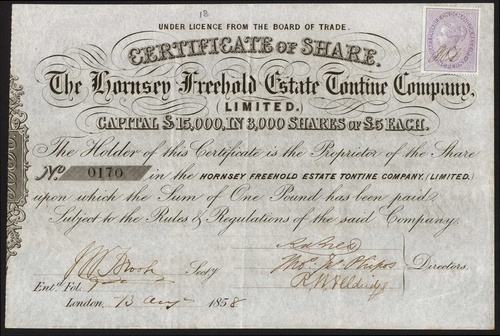 18
UNDER LICENCE FROM THE BOARD OF TRADE.
CERTIFICATE OF SHARE.
The Hornsey Freehold Estate Tontine Company,
LIMITED.
CAPITAL £15,000, IN 3,000 SHARES OF £5 EACH.
The Holder of this Certificate is the Proprietor of the Share
No. 0170 in the HORNSEY FREEHOLD ESTATE TONTINE COMPANY, (LIMITED.)
upon which the Sum of One Pound has been paid,
Subject to the Rules & Regulations of the said Company.
Secty
Directors.
Entd. Fol.
London, 13 Augt 1858